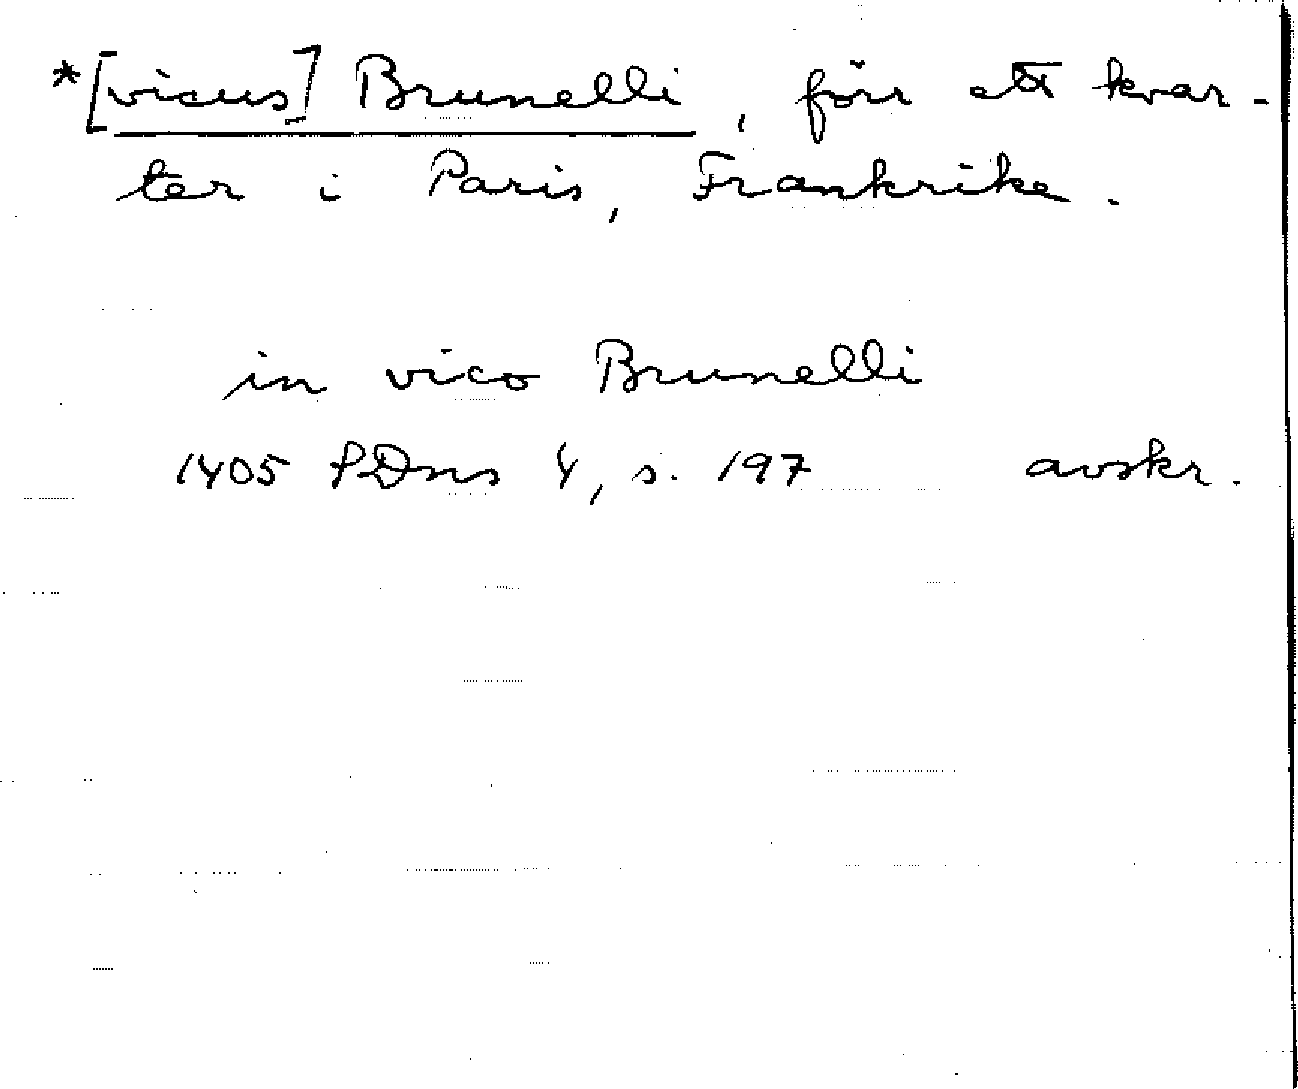 *[vicus] Brunelli, förr ett kvar-
ter i Paris, Frankrike.
in vico Brunelli
1405 SDns 4, s. 197 avskr.